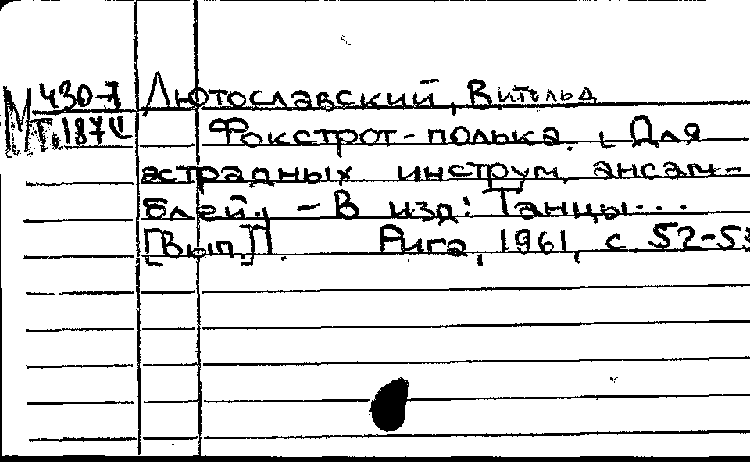 М 430-7 Лютославский, Витольд
Т, 187 Фокстрот-полька. [Для
эстрадных инструм. ансам-
блей.] - В изд: Танцы...
[Вып.] 1. Рига, 1961, с 52-53